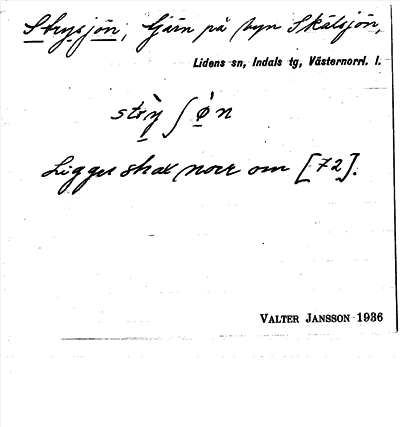 Strysjön, tjärn på byn Skälsjön,
Lidens sn, Indals tg, Västernorrl. l.
strỳ ʃ ø̀n
Ligger strax norr om [72].
VALTER JANSSON 1936